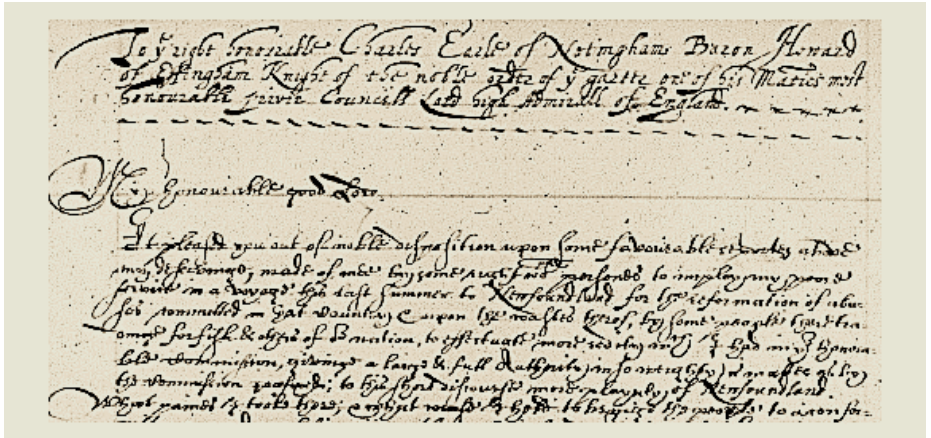 To yͤ right honorable Charles Earle of Notingham Baron Howard
of Effingham Knight of the noble order of yͤ garter one of his Maties most
honourable privie Councill Lord high Admirall of England.
My honourable good Lord.
It pleased you out of noble disposition upon some favourable reportes above
my deserving, made of mee by some to imploy my poore
service in a voyage this last summer to Newfoundland for the reformation of abu-
ses committed in that Country, & upon the coastes therof, by some people
for fish & others of nation, to effectuate more I had honora-
ble commission, giving a large & full Authority
the Commission to this short discourse of Newfoundland.
What paines I tooke there; & what to the people to a confor-